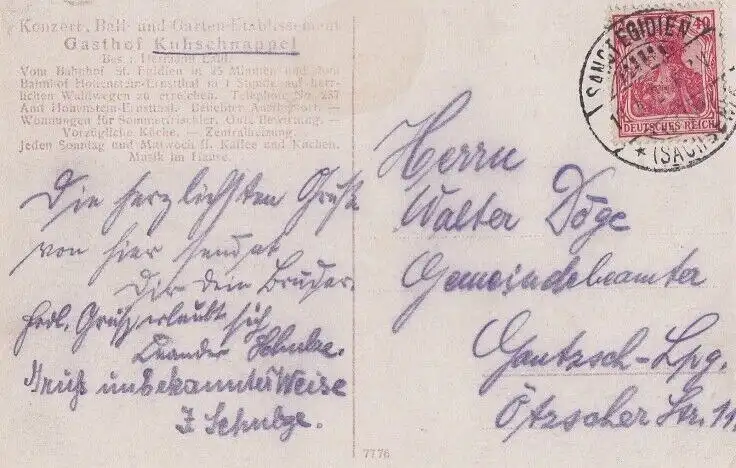 Konzert, Ball- und Garten-Etablissement
Gasthof Kuhschnappel
Bes.: Hermann
Vom Bahnhof St. Egidien in 35 Minuten und vom
Bahnhof Hohenstein-Ernstthal in 1 Stunde auf herr-
lichen Waldwegen zu erreichen. Telephon 257
Amt Hohenstein-Ernstthal. Beliebter Ausflugsort. —
Wohnungen für Sommerfrischler. Gute Bewirtung. —
Vorzügliche Küche. — Zentralheizung.
Jeden Sonntag und Mittwoch ff. Kaffee und Kuchen.
Musik im Hause.
Die herzlichsten Grüße
von hier sendet
Dir dein Bruder.
Grüße erlaubt sich
Leander Schulze.
Gruß unbekannter Weise
Schulze.
SANCT EGIDIEN
* (SACHSEN)
40
DEUTSCHES REICH
Herrn
Walter Döge
Gemeindebeamter
Gautzsch-Lpg.
Ötzscher Str. 11.
7776